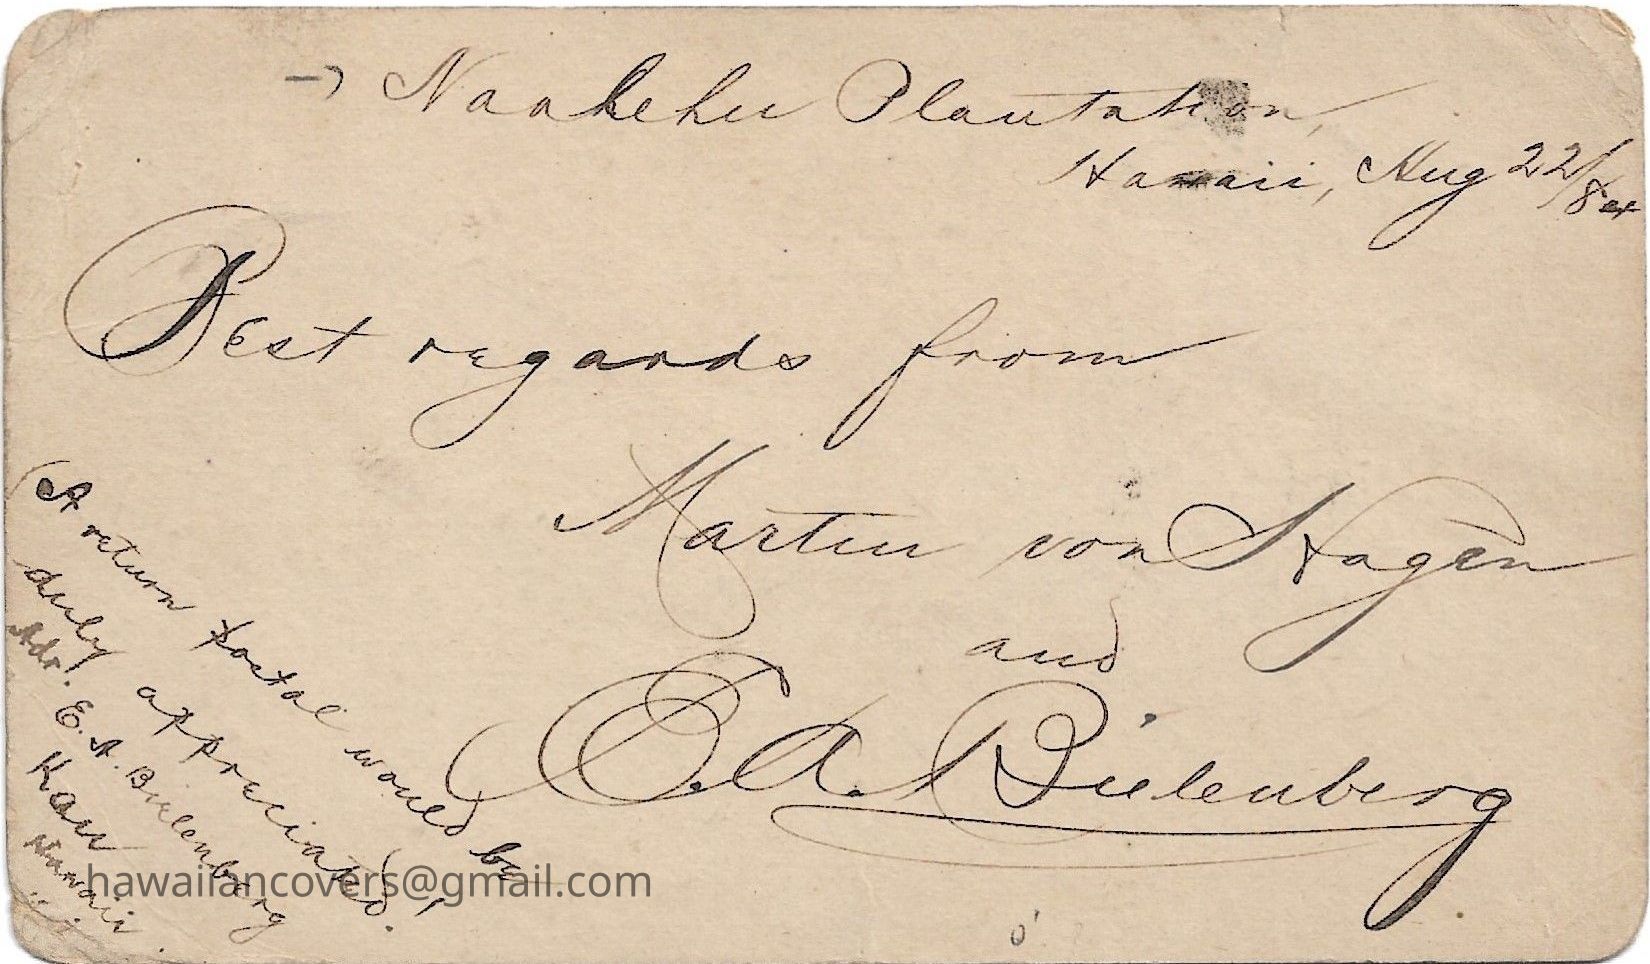 Naalehu Plantation,
Hawaii, Aug 22/84
Best regards from
Martin von Hagen
and
E. A. Bielenberg
(A return postal would be
duly appreciated!)
Adr. E. A. Bielenberg
Kau
Hawaii
hawaiiancovers@gmail.com